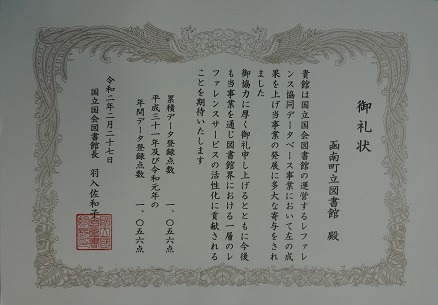 御礼状
函南町立図書館 殿
貴館は国立国会図書館の運営するレファレ
ンス協同データベース事業において左の成
果を上げ当事業の発展に多大な寄与をされ
ました
御協力に厚く御礼申し上げるとともに今後
も当事業を通じ図書館界における一層のレ
ファレンスサービスの活性化に貢献される
ことを期待いたします
累積データ登録点数 一、〇五六点
平成三十一年及び令和元年の
年間データ登録点数 一、〇五六点
令和二年二月二十七日
国立国会図書館長 羽入佐和子